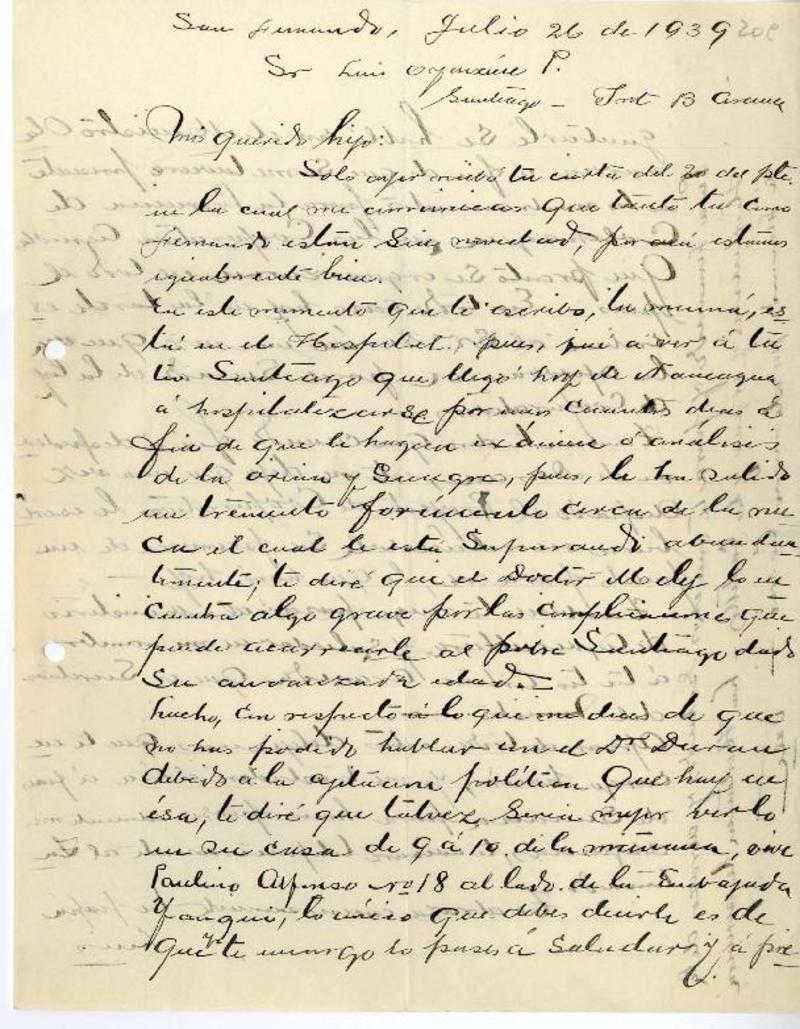 San Fernando, Julio 26 de 1939
Sr Luis Oyarzún P.
Santiago - Int B Arana
Mi querido hijo:
Solo ayer recibí tu carta del 20 del pte.
en la cual me comunicas que tanto tu como
Fernando están sin novedad, por acá estamos
igualmente bien.
En este momento que te escribo, tu mamá, es-
tá en el Hospital, pues, fué a ver á tu
tío Santiago que llegó hoy de
á hospitalizarse por unos cuantos dias á
fin de que le hagan exámene ó análisis
de la orina y Sangre, pues, le ha salido
un tremento forúnculo cerca de la nu
ca el cual le esta Supurando abundan-
temente; te diré que el Doctor lo en
cuentra algo grave por las complicaciones que
puede acarrearle al pobre Santiago dado
su avanzada edad.-
Lucho, con respecto á lo que me dices de que
no has podido hablar con el Dr. Duran
debido á la ajitacion política que hay en
ésa, te diré que talvez seria mejor verlo
en su casa de 9 á 10. de la mañana, vive
Paulino Alfonso no 18 al lado de la Embajada
Yanqui, lo único que debes decirle es de
que yo te encargo lo pases á Saludar y á pre-